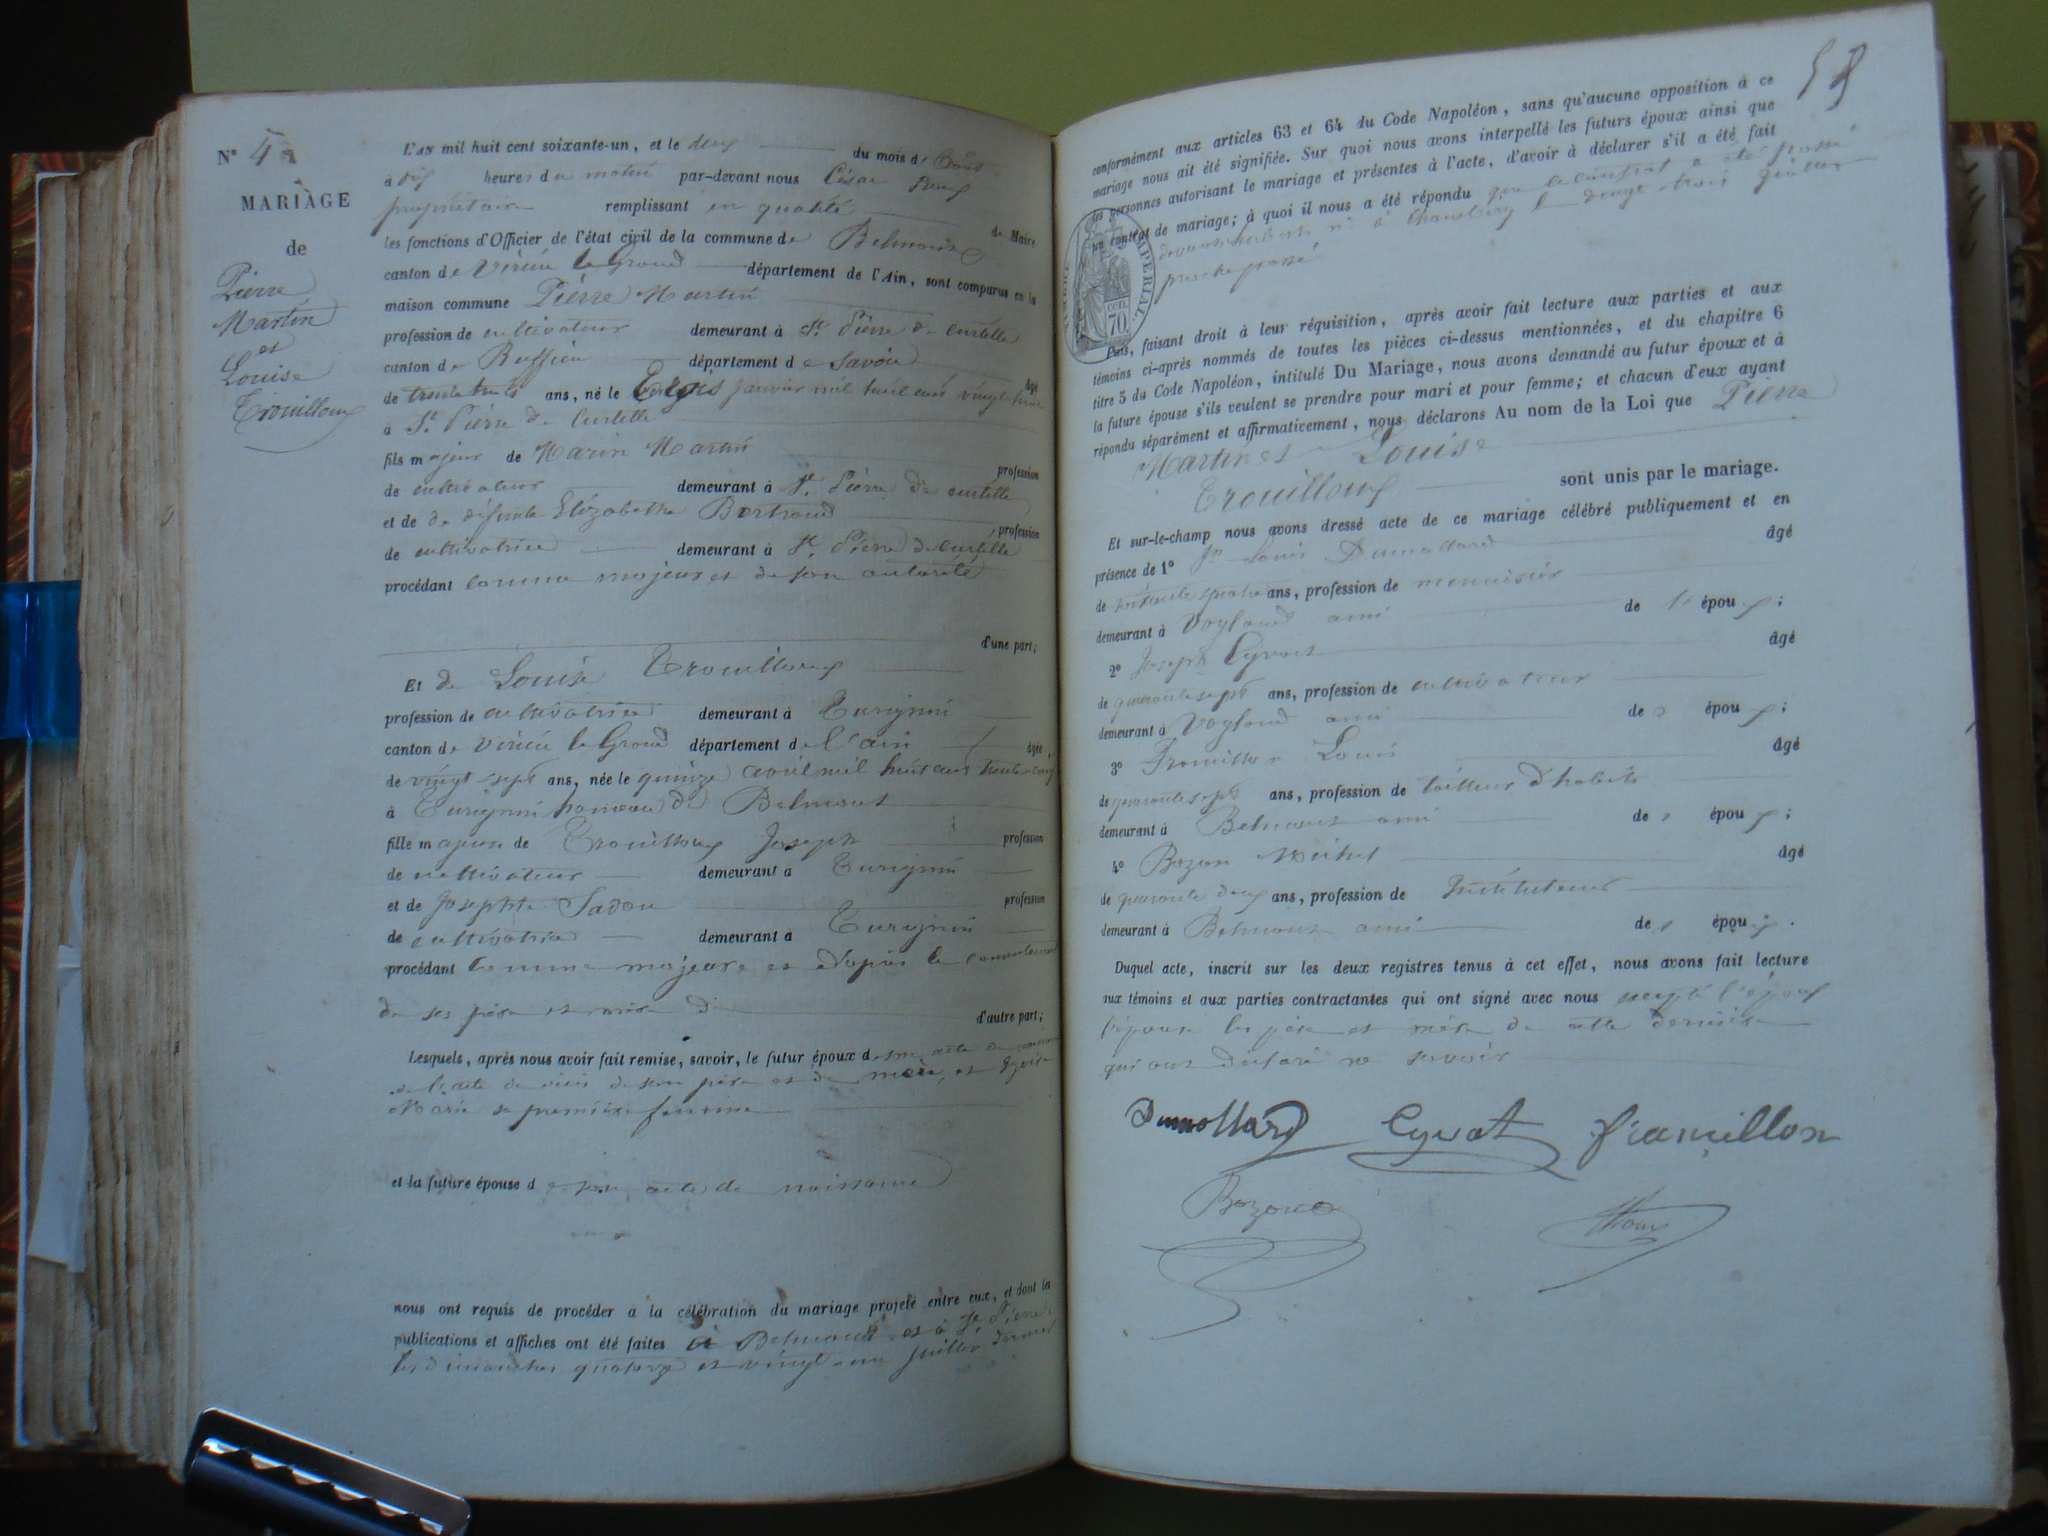 N° 4
MARIAGE
de
Pierre
Martin
et
Louise
Trouilloux
L'AN mil huit cent soixante-un, et le deux du mois d' Août
à dix heures du matin par-devant nous César
propriétaire remplissant en qualité de Maire
les fonctions d'Officier de l'état civil de la commune de Belmont
canton de Virieu le Grand département de l'Ain, sont comparus en la
maison commune Pierre Martin
profession de cultivateur demeurant à St Pierre de Curtille
canton de Ruffieu département de Savoie âgé
de trente trois ans, né le janvier mil huit cent vingt huit
à St Pierre de Curtille
fils majeur de Marin Martin profession
de cultivateur demeurant à St Pierre de Curtille
et de défunte Elizabethe Bertrand profession
de cultivatrice demeurant à St Pierre de Curtille
procédant comme majeur et de son autorité
d'une part;
Et de Louise Trouilloux
profession de cultivatrice demeurant à Turignin
canton de Virieu le Grand département de l'ain âgée
de vingt sept ans, née le quinze avril mil huit cent trente
à Turignin hameau de Belmont
fille majeure de Trouilloux Joseph profession
de cultivateur demeurant à Turignin
et de Josephte Sadou profession
de cultivatrice demeurant à Turignin
procédant comme majeure et d'après le consentement
de ses père et mère d'autre part;
Lesquels, après nous avoir fait remise, savoir, le futur époux de son acte de naissance
de l'acte de décès de son père et de mère, et
Marie sa première femme
et la future épouse de son acte de naissance
nous ont requis de procéder à la célébration du mariage projeté entre eux, et dont les
publications et affiches ont été faites à Belmont et à St Pierre
les dimanches quatorze et vingt un juillet dernier
conformément aux articles 63 et 64 du Code Napoléon, sans qu'aucune opposition à ce
mariage nous ait été signifiée. Sur quoi nous avons interpellé les futurs époux ainsi que
les personnes autorisant le mariage et présentes à l'acte, d'avoir à déclarer s'il a été fait
un contrat de mariage; à quoi il nous a été répondu que le contrat a été passé
devant le trois juillet
proche passé
IMPERIAL
CEN. 70
Puis, faisant droit à leur réquisition, après avoir fait lecture aux parties et aux
témoins ci-après nommés de toutes les pièces ci-dessus mentionnées, et du chapitre 6
titre 5 du Code Napoléon, intitulé Du Mariage, nous avons demandé au futur époux et à
la future épouse s'ils veulent se prendre pour mari et pour femme; et chacun d'eux ayant
répondu séparément et affirmativement, nous déclarons Au nom de la Loi que Pierre
Martin et Louise
Trouilloux sont unis par le mariage.
Et sur-le-champ nous avons dressé acte de ce mariage célébré publiquement et en
présence de 1° Jn Louis Dumollard âgé
de quatre ans, profession de menuisier
demeurant à Vogland ami de l' époux;
2° Joseph Cyvat âgé
de quarante sept ans, profession de cultivateur
demeurant à Vogland ami de époux;
3° Louis âgé
de quarante sept ans, profession de tailleur d'habits
demeurant à Belmont ami de époux;
4° Bozon Michel âgé
de quarante deux ans, profession de Instituteur
demeurant à Belmont ami de époux.
Duquel acte, inscrit sur les deux registres tenus à cet effet, nous avons fait lecture
aux témoins et aux parties contractantes qui ont signé avec nous excepté l'époux
l'épouse les père et mère de cette dernière
qui ont déclaré ne savoir
Dumollard Cyvat